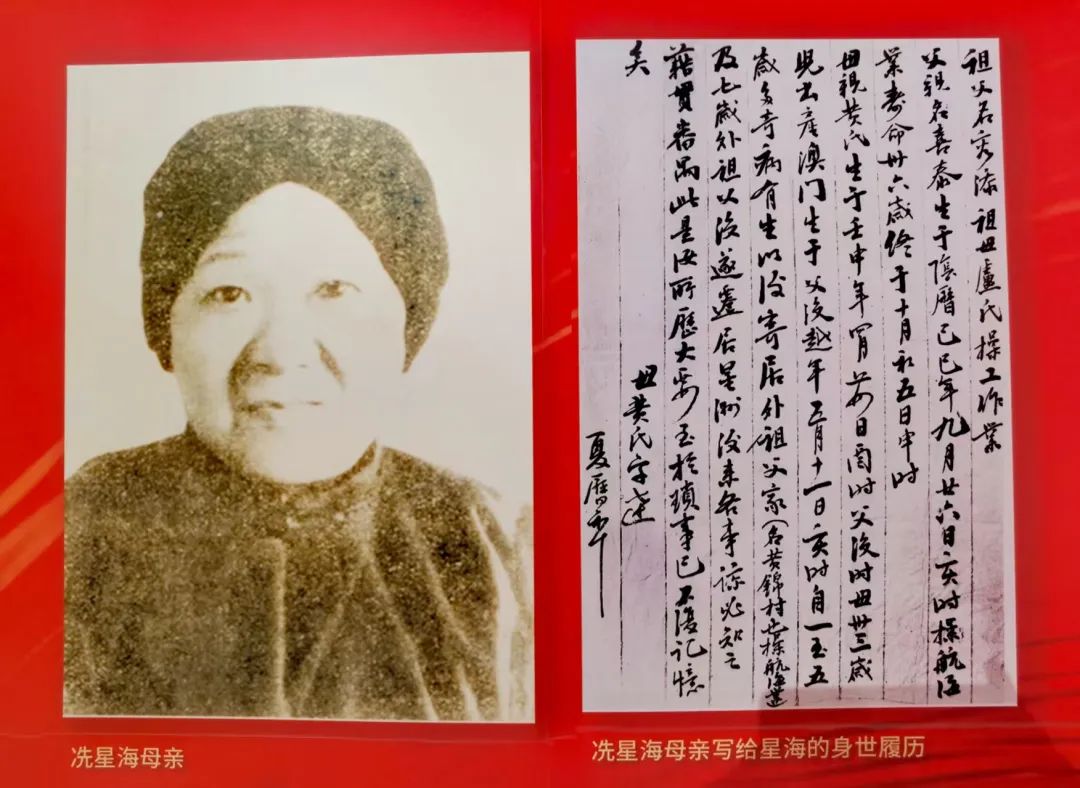 祖父名秀添祖母盧氏操工作業
父親名喜泰生于陰曆己巳年九月廿六日亥时操航海
業寿命卅六歲终于十月初五日申时
母親黄氏生于壬申年 日酉时父没时母卅三歲
児出產澳门生于父没越年五月十一日亥时自一至五
歲多奇病有生以没寄居外祖父家（名黄錦村也操航海業
及七歲外祖父没遂遷居星洲没来各事諒必知之
籍貫番禺此是汝所歷大畧至於瑣事已不復记憶
矣
母黄氏字述
夏曆
冼星海母亲
冼星海母亲写给星海的身世履历